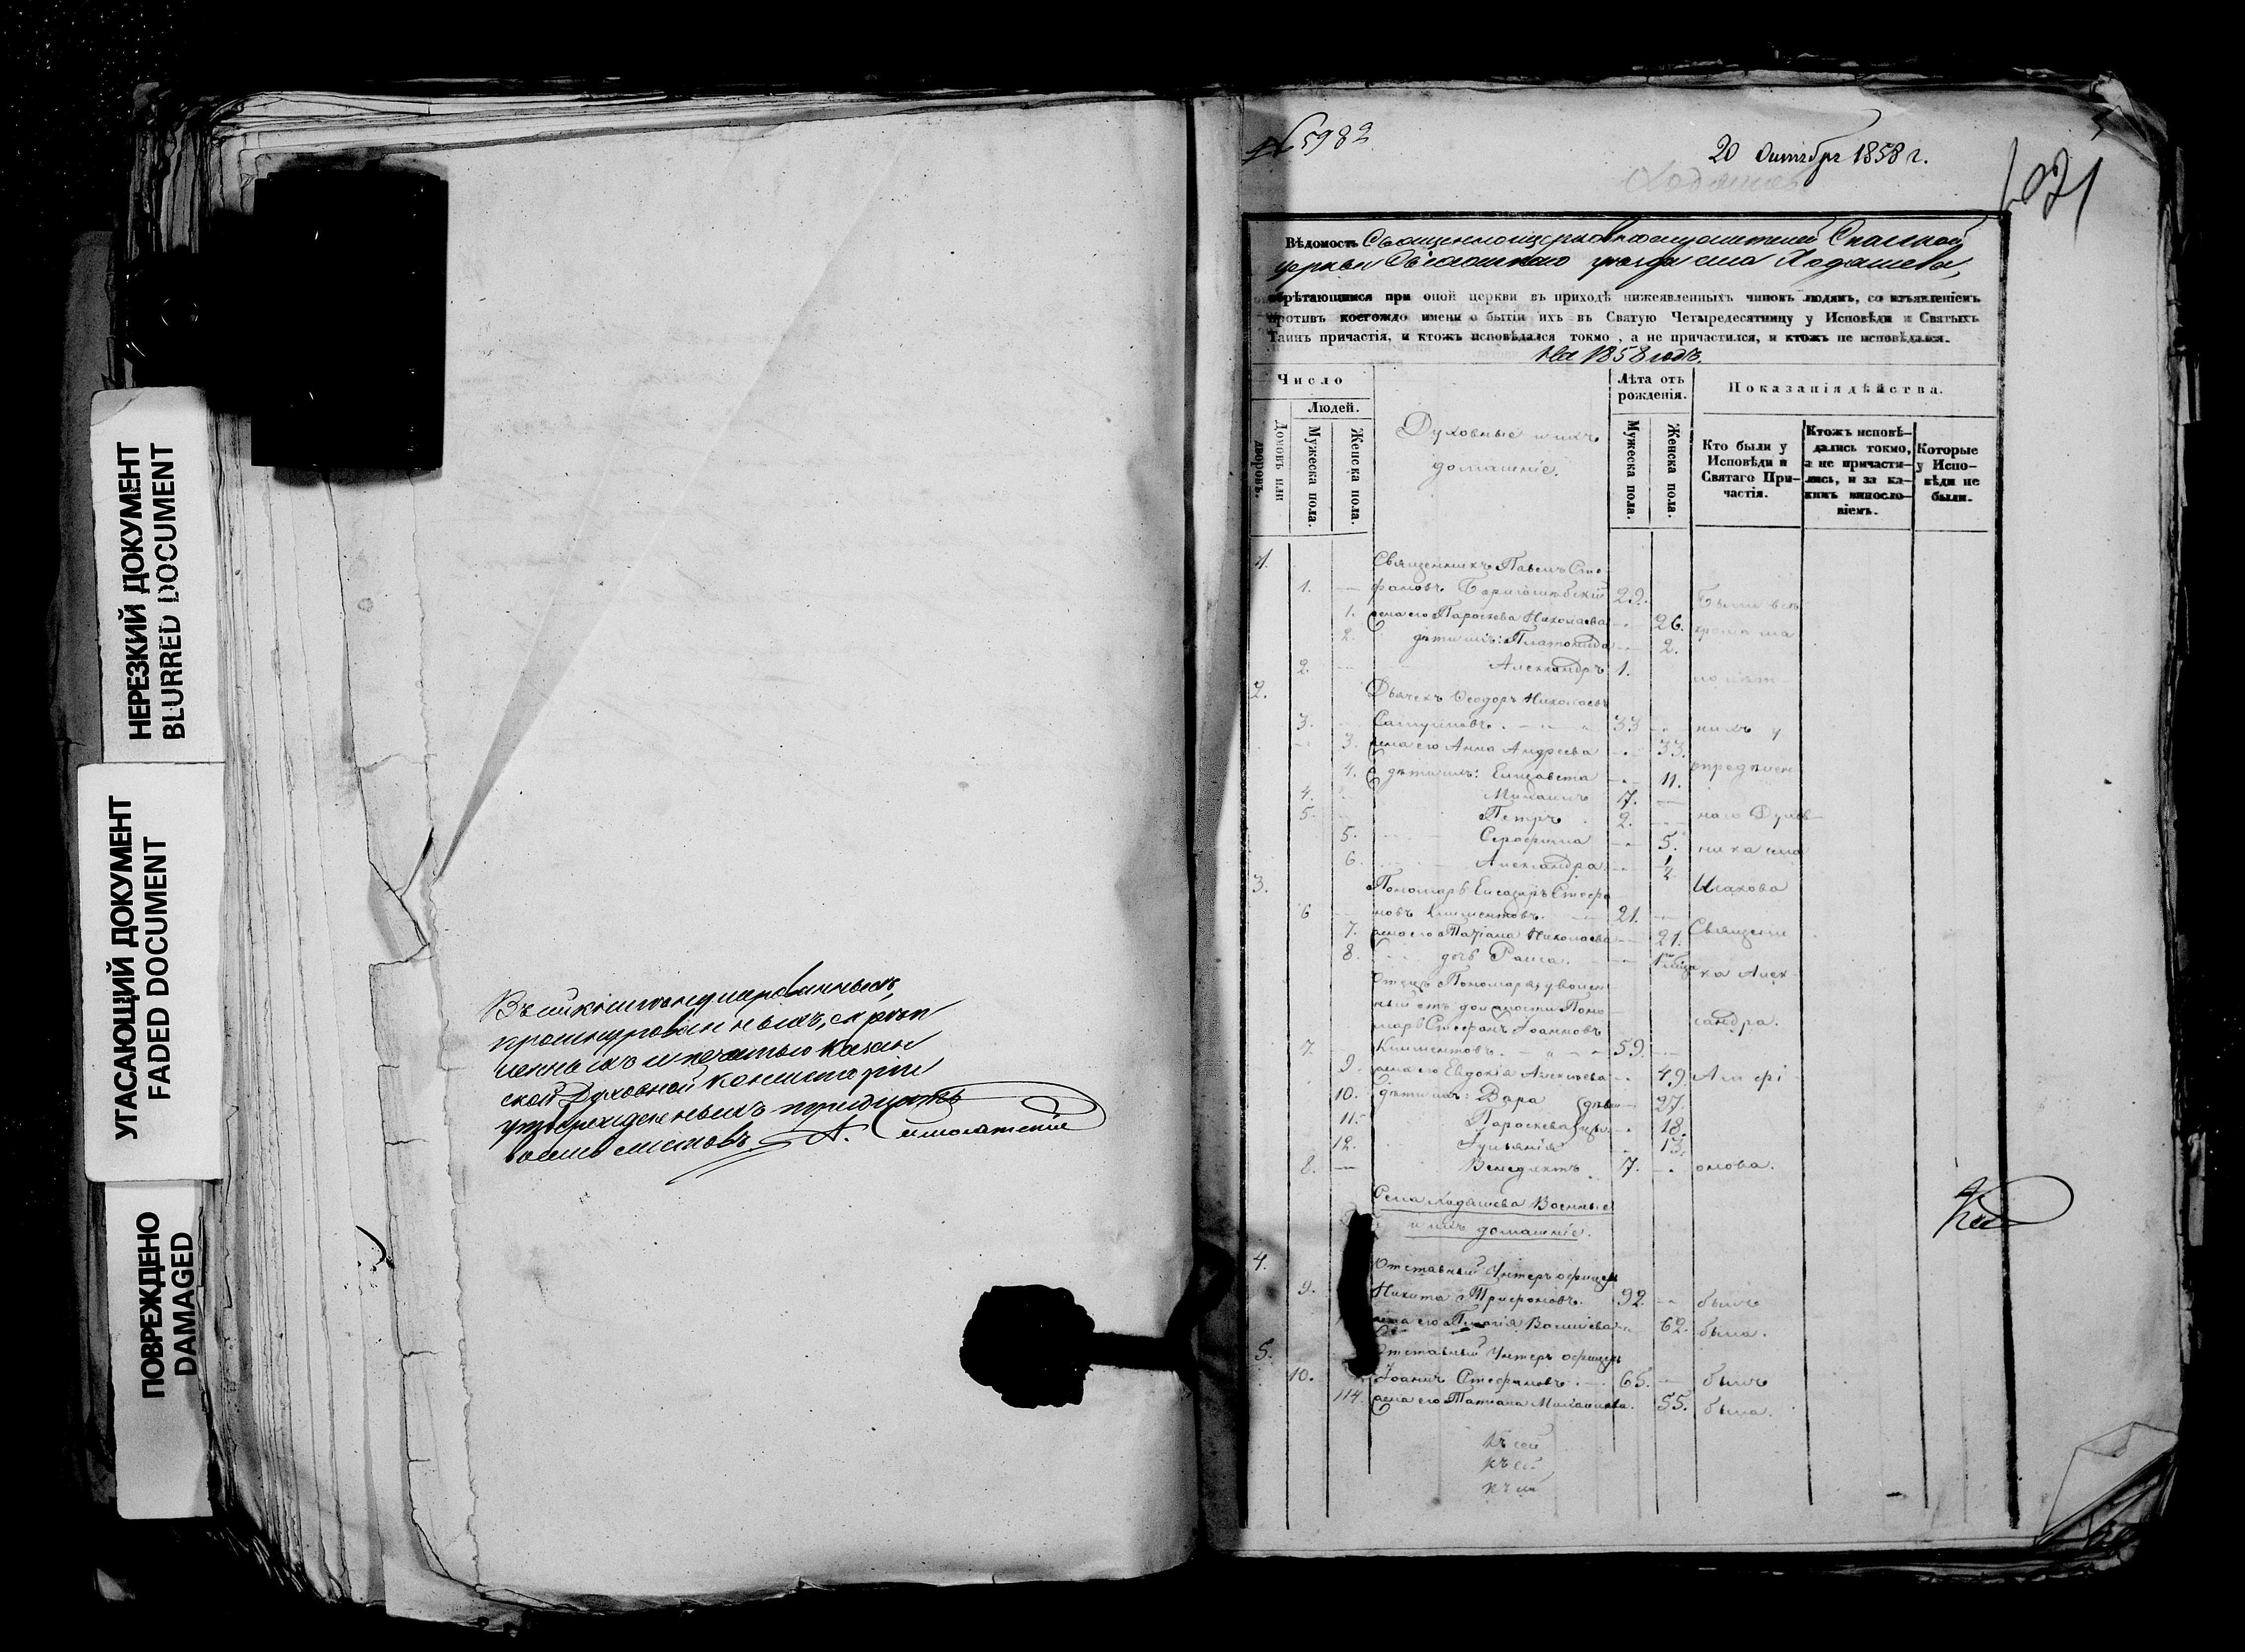 НЕРЕЗКИЙ ДОКУМЕНТ
BLURRED DOCUMENT
УГАСАЮЩИЙ ДОКУМЕНТ
FADED DOCUMENT
ПОВРЕЖДЕНО
DAMAGED
Въ сей книгѣ нумерованныхъ,
прошнурованныхъ, скрѣп
ленныхъ и печатью Казан
ской Духовной Консисторіи
утвержденныхъ тридцать
восемь листовъ. А.
№ 5982
20 Октября 1858 г.
Ходяшевъ
1021
Вѣдомость Священноцерковнослужителей Спасской
церкви уѣзда села Ходяшева,
обрѣтающимся при оной церкви въ приходѣ нижеявленныхъ чиновъ людямъ, со изъявленіемъ
противъ коегождо имени о бытіи ихъ въ Святую Четыредесятницу у Исповѣди и Святыхъ
Таинъ причастія, и ктожъ исповѣдался токмо, а не причастился, и ктожъ не исповѣдался.
На 1858 годъ.
Число
Людей.
Домовъ или дворовъ.
Мужеска пола.
Женска пола.
Духовные и ихъ
домашніе.
Лѣта отъ
рожденія.
Мужеска пола.
Женска пола.
Показанія дѣйства.
Кто были у
Исповѣди и
Святаго При-
частія.
Ктожъ исповѣ-
дались токмо,
а не причасти-
лись, и за ка-
кимъ винословіемъ.
Которые
у Испо-
вѣди не
были.
1. Священникъ Павелъ Сте
1. — фановъ 29. Были всѣ
1. жена его Параскева Николаева 26.
2. дѣти ихъ: Платонида 2.
2 Александръ 1.
2. Дьячекъ Ѳеодоръ Николаевъ
3. Сатурновъ. 33 нихъ у
3. жена его Анна Андреева 33.
4. дѣти ихъ: Елисавета 11. опредѣлен
4. Михаилъ 7.
5. Петръ 2. наго Духов—
5. Серафима 5. ника села
6. Александра 1/2
3. Пономарь Елеазаръ Стефа Шахова
6 новъ Климентовъ. 21.
7. жена его Татіана Николаева 21. Священни
8. дочь Раиса. ка Алек
Отецъ Пономаря, уволен
ный отъ должности Поно
марь Стефанъ Іоанновъ сандра.
7. Климентовъ. 59.
9. жена его Евдокія Алексѣева 49
10. дѣти ихъ: Вѣра 27.
11. Параскева 18.
12. Іуліанія 13.
8. — Венедиктъ 7. онова.
Села Ходяшева Военные
и ихъ домашніе.
4. Отставный Унтеръ офицеръ
9. Никита Трифоновъ. 92. былъ
жена его Василіева 62. была.
5. Отставный Унтеръ офицеръ
10. Іоаннъ Стефановъ. 65. былъ
114. жена его Татіана Михаилова. 55. была.
къ сей
къ сей
къ сей